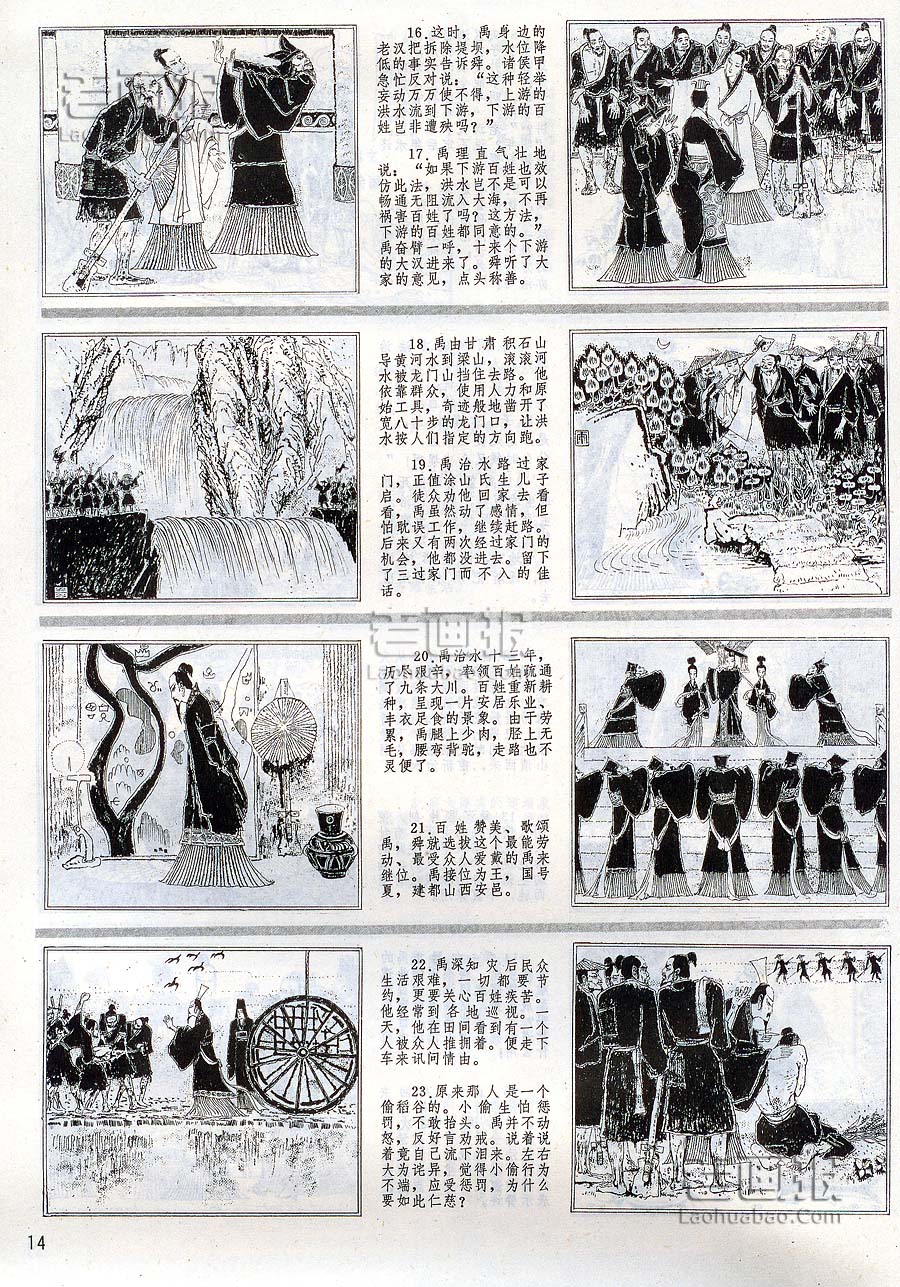 16.这时，禹身边的
老汉把拆除堤坝，水位降
低的事实告诉舜。诸侯甲
急忙反对说：“这种轻举
妄动万万使不得，上游的
洪水流到下游，下游的百
姓岂非遭殃吗？”
17.禹理直气壮地
说：“如果下游百姓也效
仿此法，洪水岂不是可以
畅通无阻流入大海，不再
祸害百姓了吗？这方法，
下游的百姓都同意的。”
禹奋臂一呼，十来个下游
的大汉进来了。舜听了大
家的意见，点头称善。
18.禹由甘肃积石山
导黄河水到梁山，滚滚河
水被龙门山挡住去路。他
依靠群众，使用人力和原
始工具，奇迹般地凿开了
宽八十步的龙门口，让洪
水按人们指定的方向跑。
19.禹治水路过家
门，正值涂山氏生儿子
启。徒众劝他回家去看
看，禹虽然动了感情，但
怕耽误工作，继续赶路。
后来又有两次经过家门的
机会，他都没进去。留下
了三过家门而不入的佳
话。
20.禹治水十三年，
历尽艰辛，率领百姓疏通
了九条大川。百姓重新耕
种，呈现一片安居乐业、
丰衣足食的景象。由于劳
累，禹腿上少肉，胫上无
毛，腰弯背驼，走路也不
灵便了。
21.百姓赞美、歌颂
禹，舜就选拔这个最能劳
动、最受众人爱戴的禹来
继位。禹接位为王，国号
夏，建都山西安邑。
22.禹深知灾后民众
生活艰难，一切都要节
约，更要关心百姓疾苦。
他经常到各地巡视。一
天，他在田间看到有一个
人被众人推拥着。便走下
车来讯问情由。
23.原来那人是一个
偷稻谷的。小偷生怕惩
罚，不敢抬头。禹并不动
怒，反好言劝戒。说着说
着竟自己流下泪来。左右
大为诧异，觉得小偷行为
不端，应受惩罚，为什么
要如此仁慈？
老画报
Laohuabao.Com
14